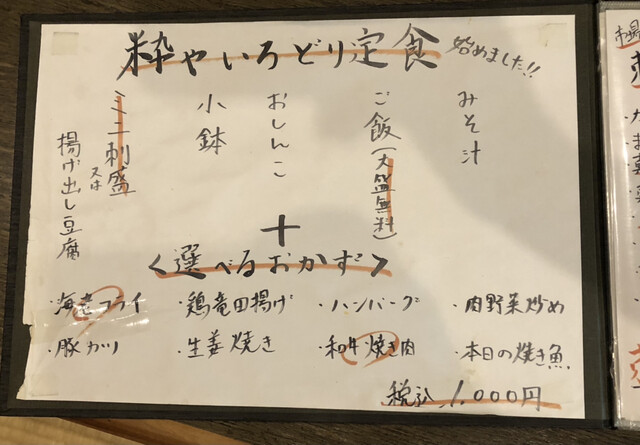 粋やいろどり定食 始めました!!
みそ汁
ご飯(大盛無料)
おしんこ
小鉢
ミニ刺盛
又は
揚げ出し豆腐
+
<選べるおかず>
・海老フライ ・鶏竜田揚げ ・ハンバーグ ・肉野菜炒め
・豚カツ ・生姜焼き ・和牛焼き肉 ・本日の焼き魚
税込 1,000円